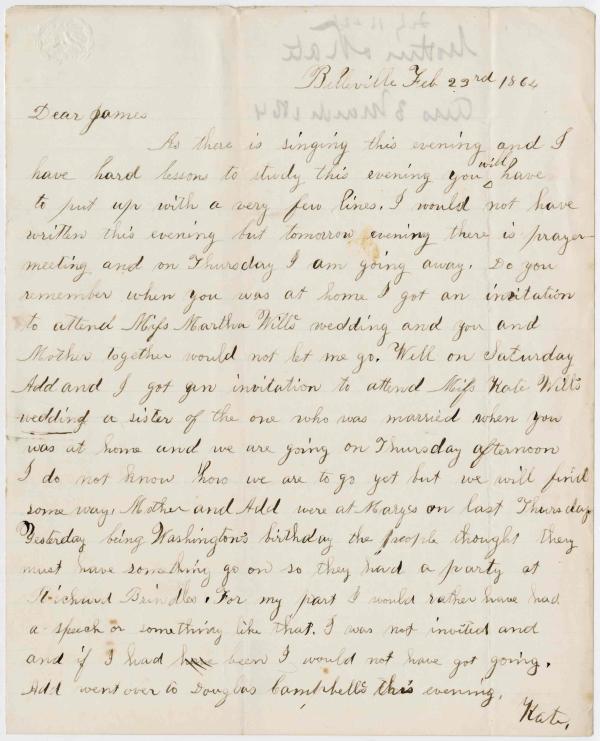 Belleville Feb 23rd 1864
Dear James
As there is singing this evening and I
have hard lessons to study this evening you will have
to put up with a very few lines. I would not have
written this evening but tomorrow evening there is prayer-
meeting and on Thursday I am going away. Do you
remember when you was at home I got an invitation
to attend Miss Martha Wills wedding and you and
Mother together would not let me go. Well on Saturday
Add and I got an invitation to attend Miss Kate Wills
wedding a sister of the one who was married when you
was at home and we are going on Thursday afternoon
I do not know how we are to go yet but we will find
some way. Mother and Add were at Marges on last Thursday
Yesterday being Washington's birthday the people thought they
must have something go on so they had a party at
Richard Brindles. For my part I would rather have had
a speech or something like that. I was not invited and
and if I had have been I would not have got going.
Add went over to Douglas Campbells this evening.
Kate.